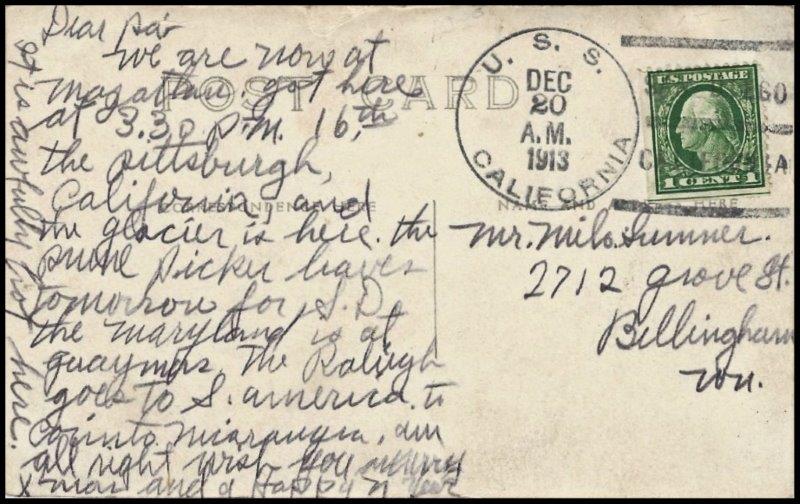 Dear Pa
we are now at
Mazatlan got here
at 3.30 P.M. 16th
the pittsburgh,
California and
the glacier is here. the
prune picker leaves
tomorrow for S.D.
the maryland is at
guaymas. The Raleigh
goes to S. america. to
Corinto Nicaraugia, am
all right wish you a merry
Xmas and a happy n year
It is awfully hot here.
POST CARD
CORRESPONDENCE HERE
NAME AND HERE
U. S. S.
DEC
20
A.M.
1913
CALIFORNIA
U.S. POSTAGE
1 CENT 1
Mr. Milo Sumner.
2712 Grove St.
Bellingham
Wn.